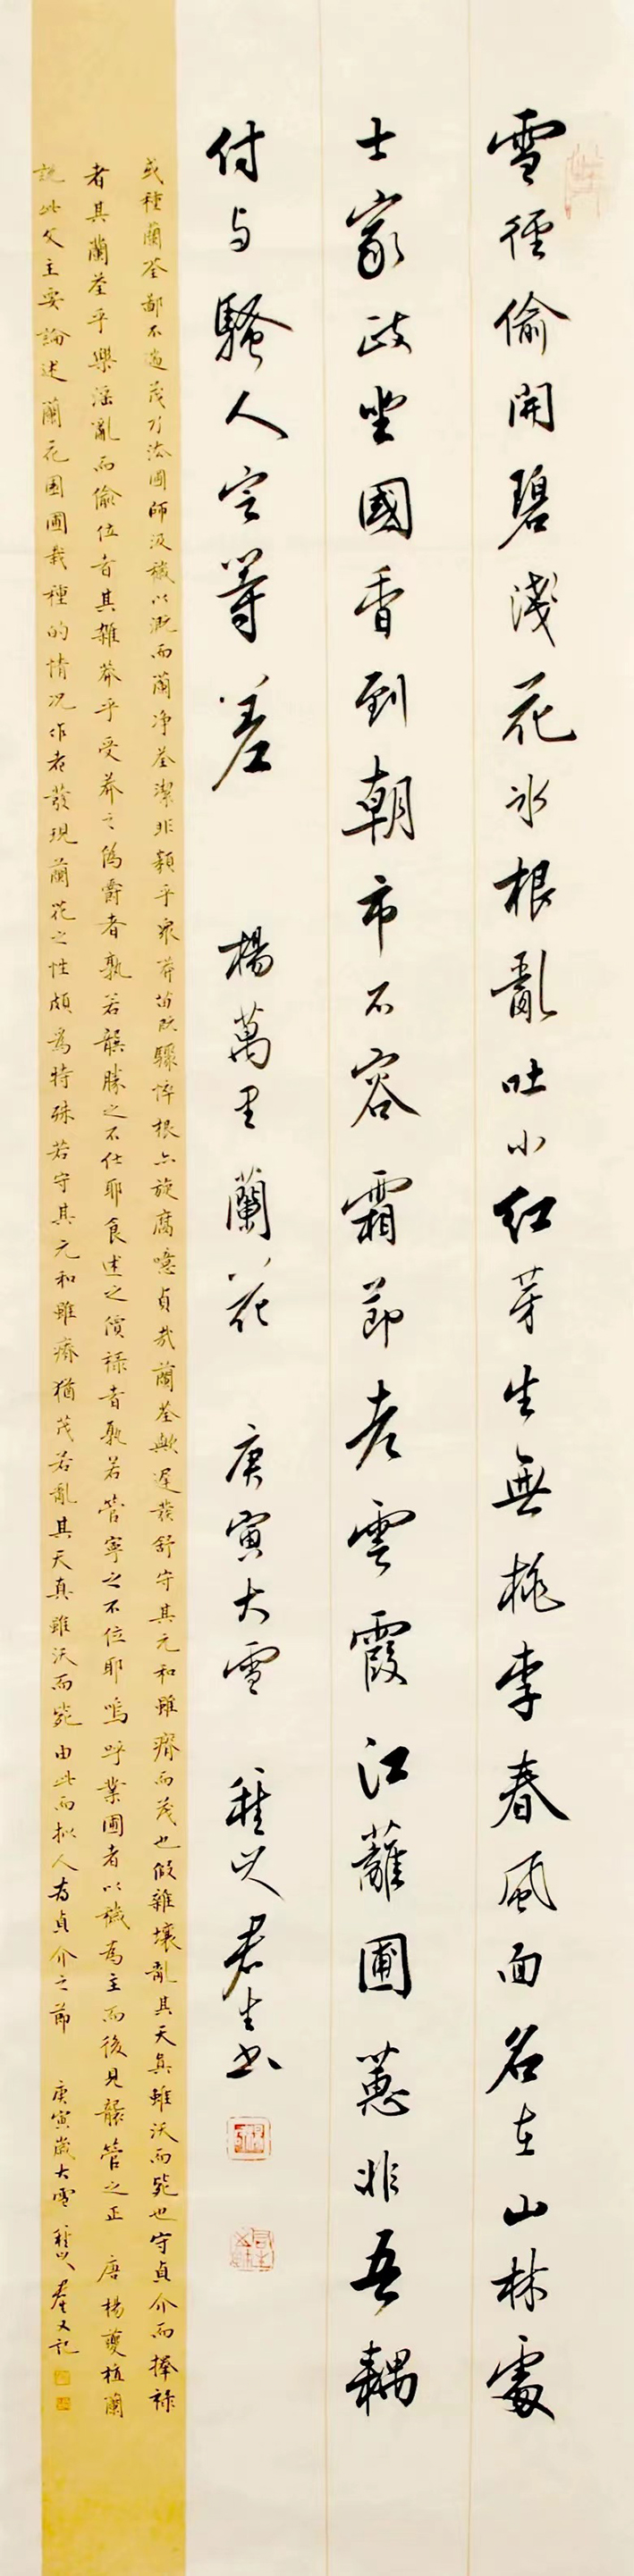 雪徑偷開碧淺花氷根亂吐小紅芽生無桃李春風面名在山林處
士家政坐國香到朝市不容霜節老雲霞江蘺圃蕙非吾耦
付与騷人定等差 楊萬里蘭花 庚寅大雪 生书
或種蘭荃鄙不遄茂乃法圃師汲穢以溉而蘭净荃潔非類乎衆莽苗既驟悴根亦旋腐噫貞哉蘭荃歟遲發舒守其元和雖瘠而茂也假雜壤亂其天真雖沃而斃也守貞介而擇祿
者其蘭荃乎樂淫亂而偷位者其雜莽乎受莽之僞爵者孰若龔勝之不仕耶食述之僭祿者孰若管寧之不位耶嗚呼業圃者以穢爲主而後見龔管之正 唐楊夔植蘭
說此文主要論述蘭花園圃栽種的情况作者發現蘭花之性頗爲特殊若守其元和雖瘠猶茂若亂其天真雖沃而斃由此而拟人有貞介之節 庚寅歲大雪 又記